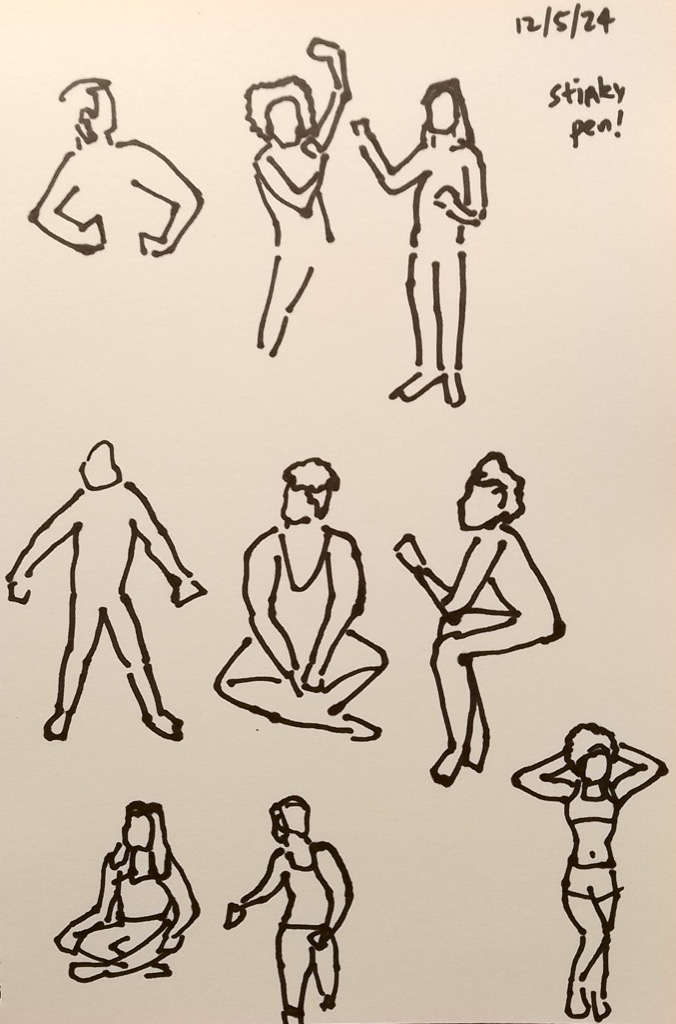 12/5/24
stinky
pen!